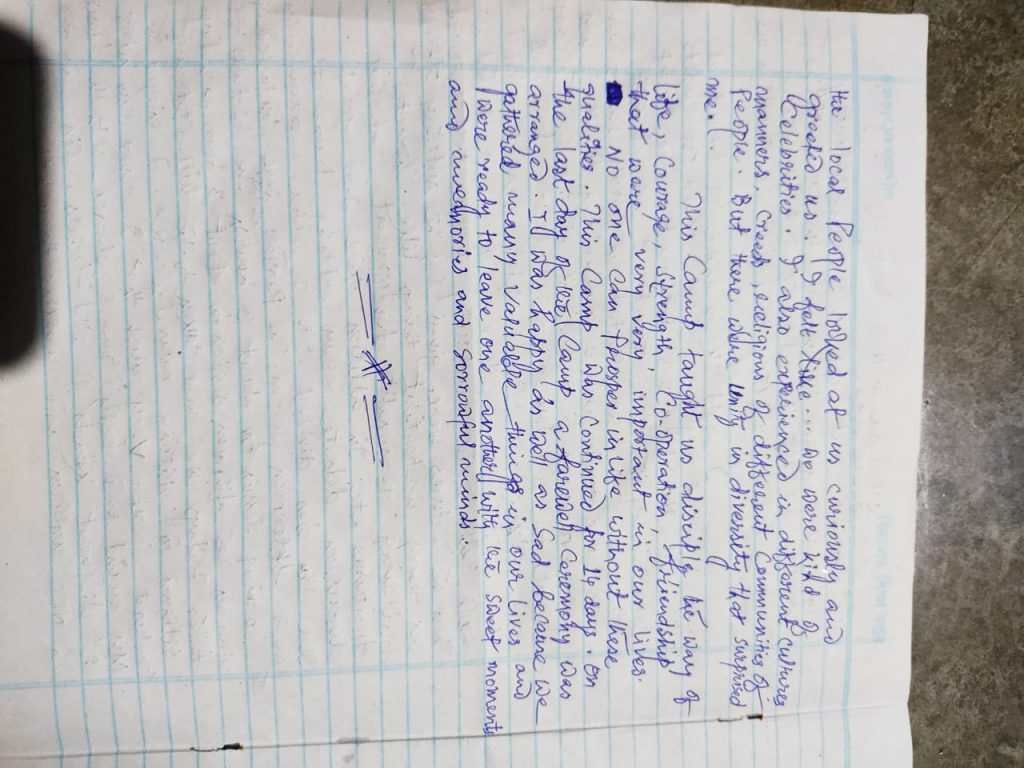 the local People looked at us curiously and
greeted us. I felt like... we were kind of
Celebrities. I also experienced in different cultures
manners, creeds, religions of different Communities of
People. But there were Unity in diversity that surprised
me.
This Camp taught us disciple the way of
life, Courage, strength, Co-operation, friendship
that were very very important in our lives.
No one can Prosper in life without these
qualities. This Camp was continued for 14 days. On
the last day of the Camp a farewel Ceremony was
arranged. I was happy as well as Sad because we
gathered many valuable things in our lives and
were ready to leave one another with the sweet moments
and memories and sorrowful minds..